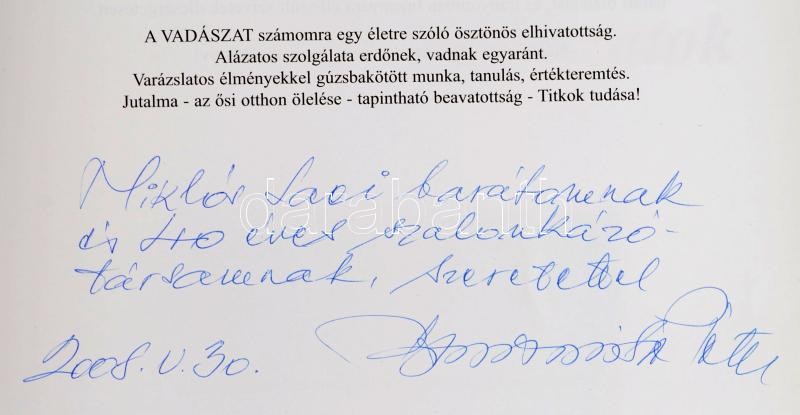 A VADÁSZAT számomra egy életre szóló ösztönös elhivatottság.
Alázatos szolgálata erdőnek, vadnak egyaránt.
Varázslatos élményekkel gúzsbakötött munka, tanulás, értékteremtés.
Jutalma - az ősi otthon ölelése - tapintható beavatottság - Titkok tudása!
Miklós Laci barátamnak
és 40 éves szalonkázó-
társamnak, szeretettel
2008. V. 30.
darabanth